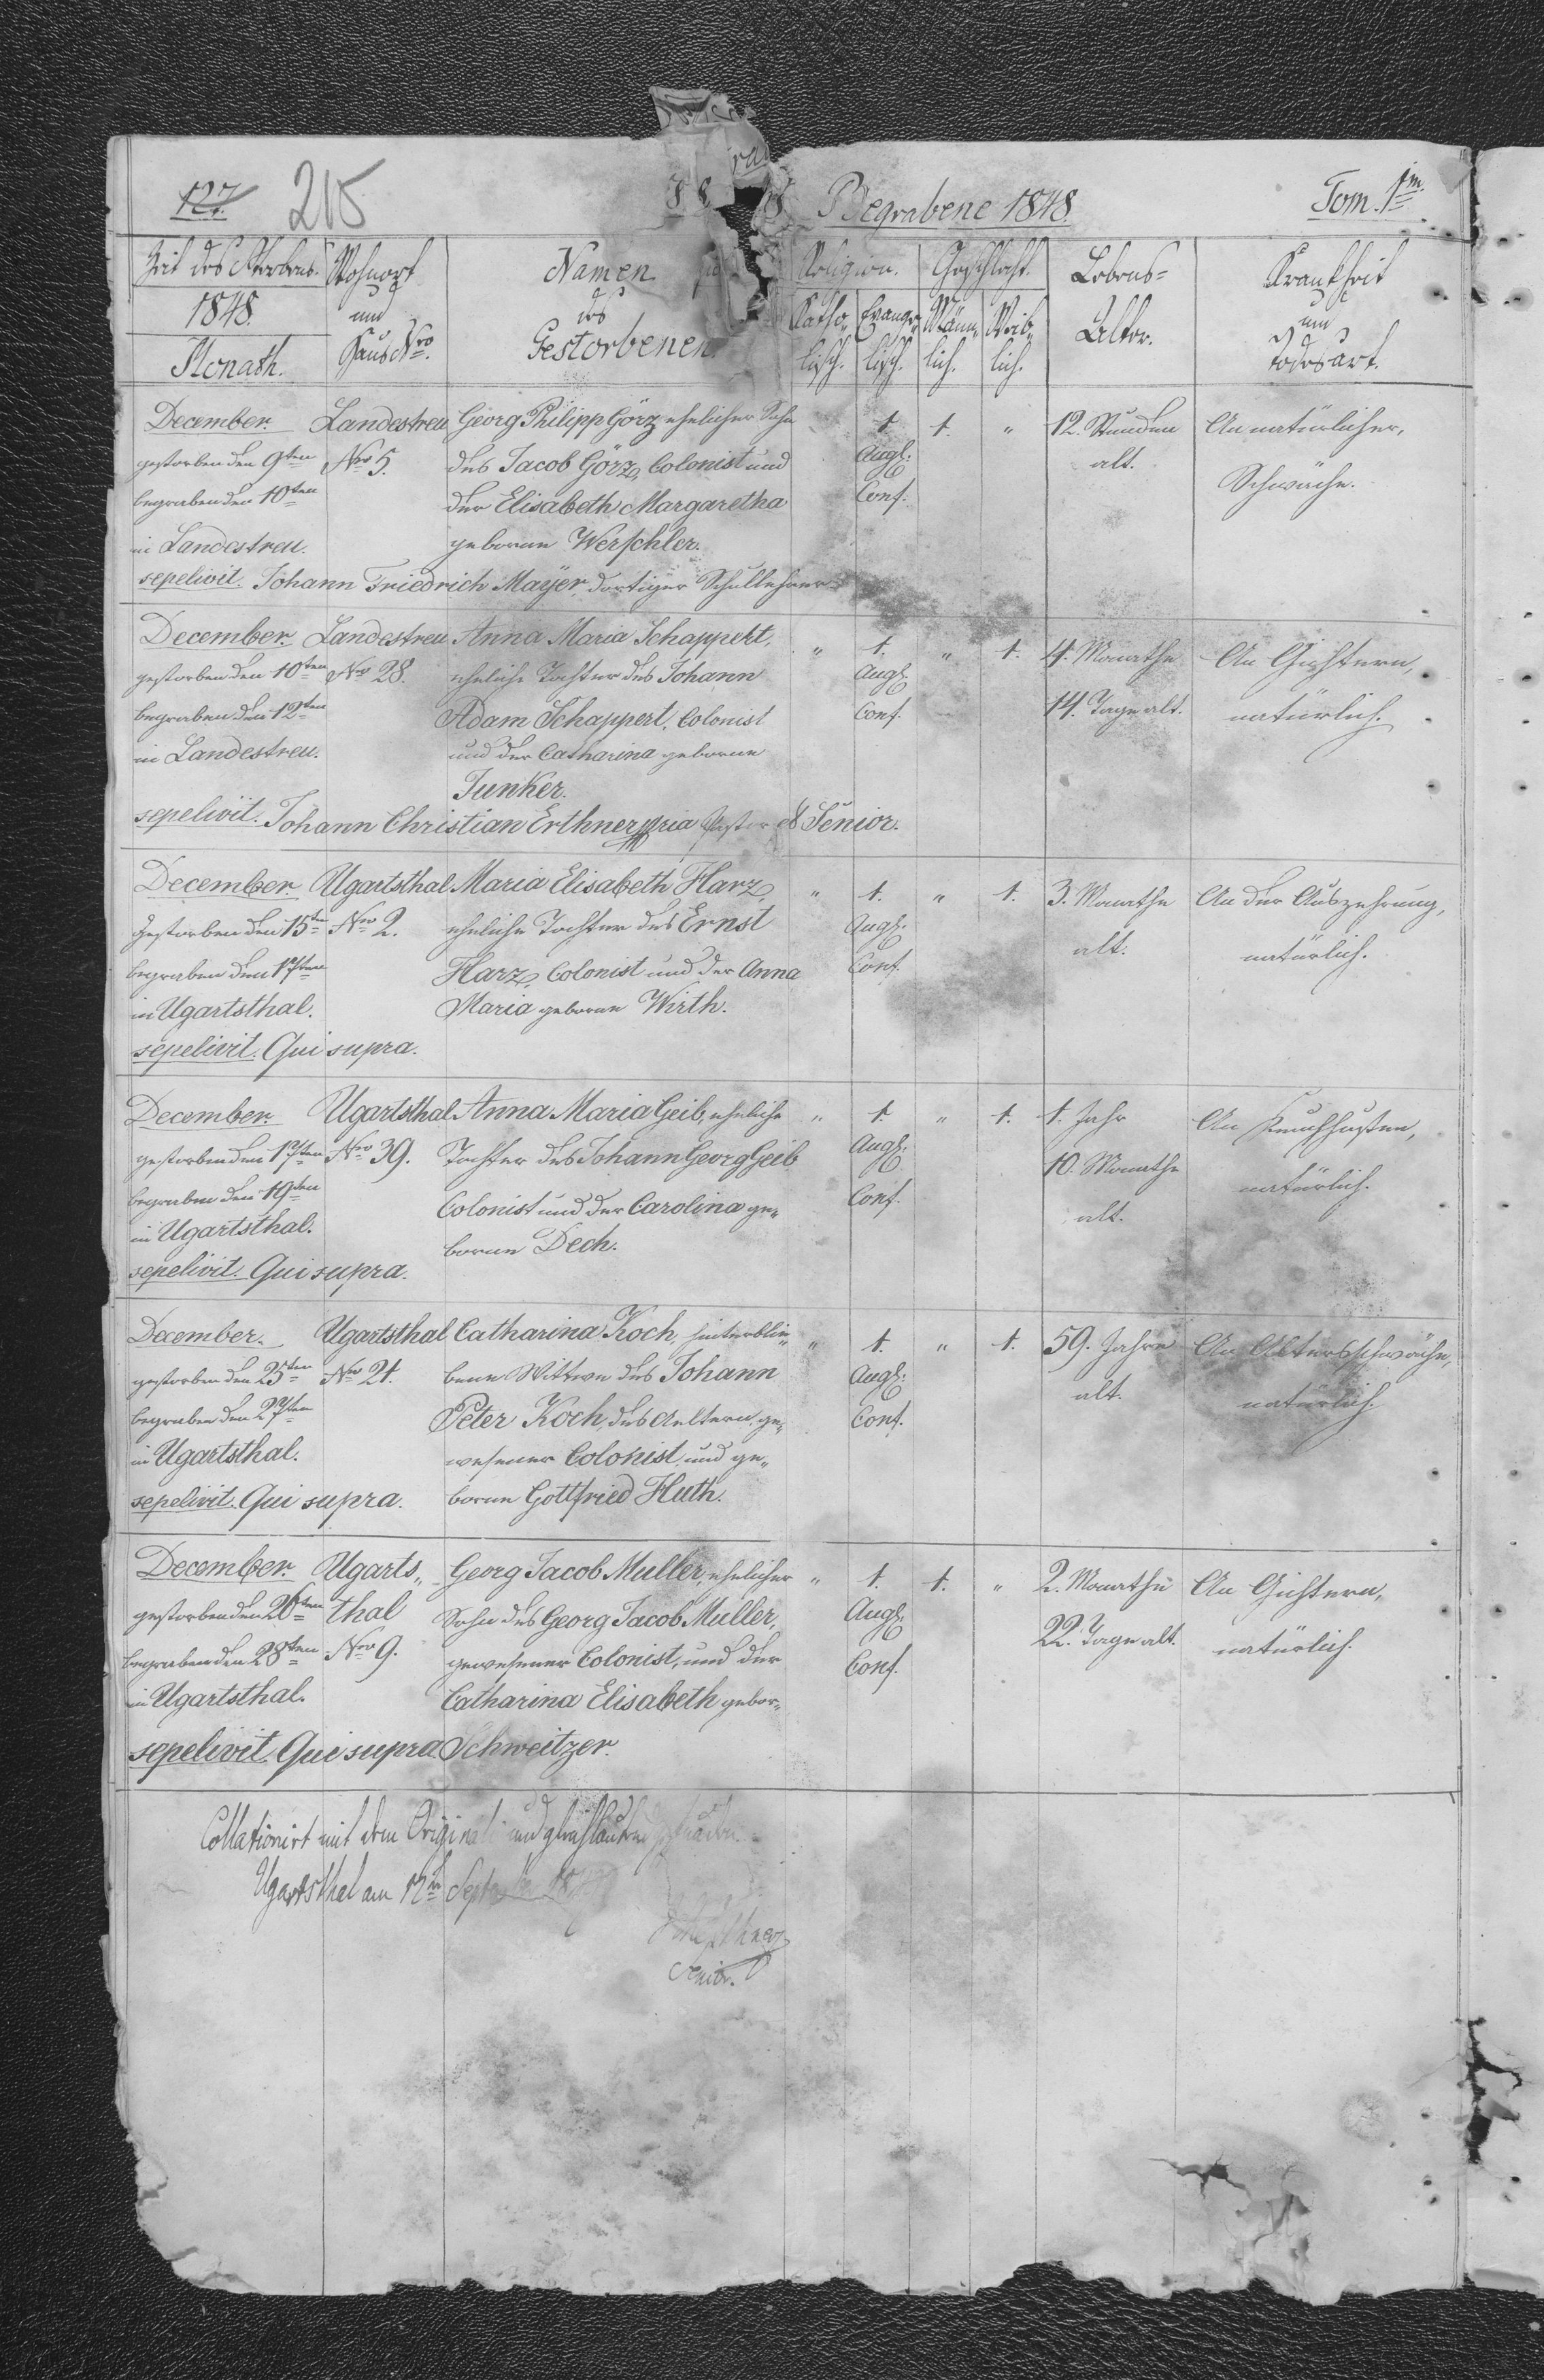 127. 215 Begrabene 1848. Tom. 1m.
Zeit des Sterbens. Wohnort Namen Religion. Geschlecht. Lebens= Krankheit
1848. und des Katho„ Evange„ Männ„ Weib„ Alter. und
Monath. Haus Nro. Gestorbenen. lisch. lisch. lich. lich. Todesart.
December. Landestreu Georg Philipp Görz, ehelicher Sohn 1. 1. „ 12. Stunden An natürlicher,
gestorben den 9ten Nro 5. des Jacob Görz, Colonist und Augs. alt. Schwäche.
begraben den 10ten der Elisabeth Margaretha Conf.
in Landestreu. geborne Werschler.
sepelivit. Johann Friedrich Mayer, dortiger Schullehrer.
December. Landestreu Anna Maria Schappert, „ 1. „ 1. 4. Monathe An Gichtern,
gestorben den 10ten Nro 28. eheliche Tochter des Johann Augs.
begraben den 12ten Adam Schappert, Colonist Conf. 14. Tage alt. natürlich.
in Landestreu. und der Catharina geborne
Junker.
sepelivit. Johann Christian Erthner Senior.
December. Ugartsthal Maria Elisabeth Harz, „ 1. „ 1. 3. Monathe An der Auszehrung,
gestorben den 15ten Nro 2. eheliche Tochter des Ernst Augs. alt. natürlich.
begraben den 17ten Harz, Colonist und der Anna Conf.
in Ugartsthal. Maria geborne Wirth.
sepelivit. Qui supra.
December. Ugartsthal Anna Maria Geib, eheliche „ 1. „ 1. 1. Jahr An Keuchhusten,
gestorben den 17ten Nro 39. Tochter des Johann Georg Geib Augs. 10. Monathe natürlich.
begraben den 19ten Colonist und der Carolina ge„ Conf. alt.
in Ugartsthal. borne Dech.
sepelivit. Qui supra.
December. Ugartsthal Catharina Koch, hinterblie„ „ 1. „ 1. 59. Jahre An Altersschwäche,
gestorben den 25ten Nro 21. bene Wittwe des Johann Augs. alt. natürlich.
begraben den 27ten Peter Koch, des Aeltern, ge„ Conf.
in Ugartsthal. wesener Colonist, und ge„
sepelivit. Qui supra. borne Gottfried Huth.
December. Ugarts„ Georg Jacob Muller, ehelicher „ 1. 1. „ 2. Monathe An Gichtern,
gestorben den 26ten thal Sohn des Georg Jacob Müller, Augs. 22. Tage alt. natürlich.
begraben den 28ten Nro 9. gewesener Colonist, und der Conf.
in Ugartsthal. Catharina Elisabeth gebor„
sepelivit. Qui supra Schweitzer.
Collationirt mit dem Originali und gleichlautend
Ugartsthal am 12n
Senior.